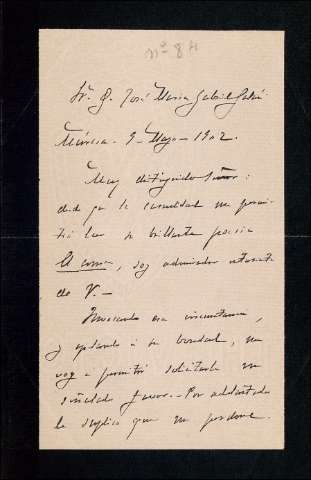 nº 84
Sr. D. José Maria Gabriel y Galán
Murcia - 9 - Mayo - 1902.
Muy distinguido Señor:
desde que la casualidad me permi-
tió leer su brillante poesia
El ama, soy admirador
de V. -
Invocando esa circunstancia,
y apelando á su bondad, me
voy á permitir solicitarle un
señalado favor. - Por adelantado
le suplico que me perdone.